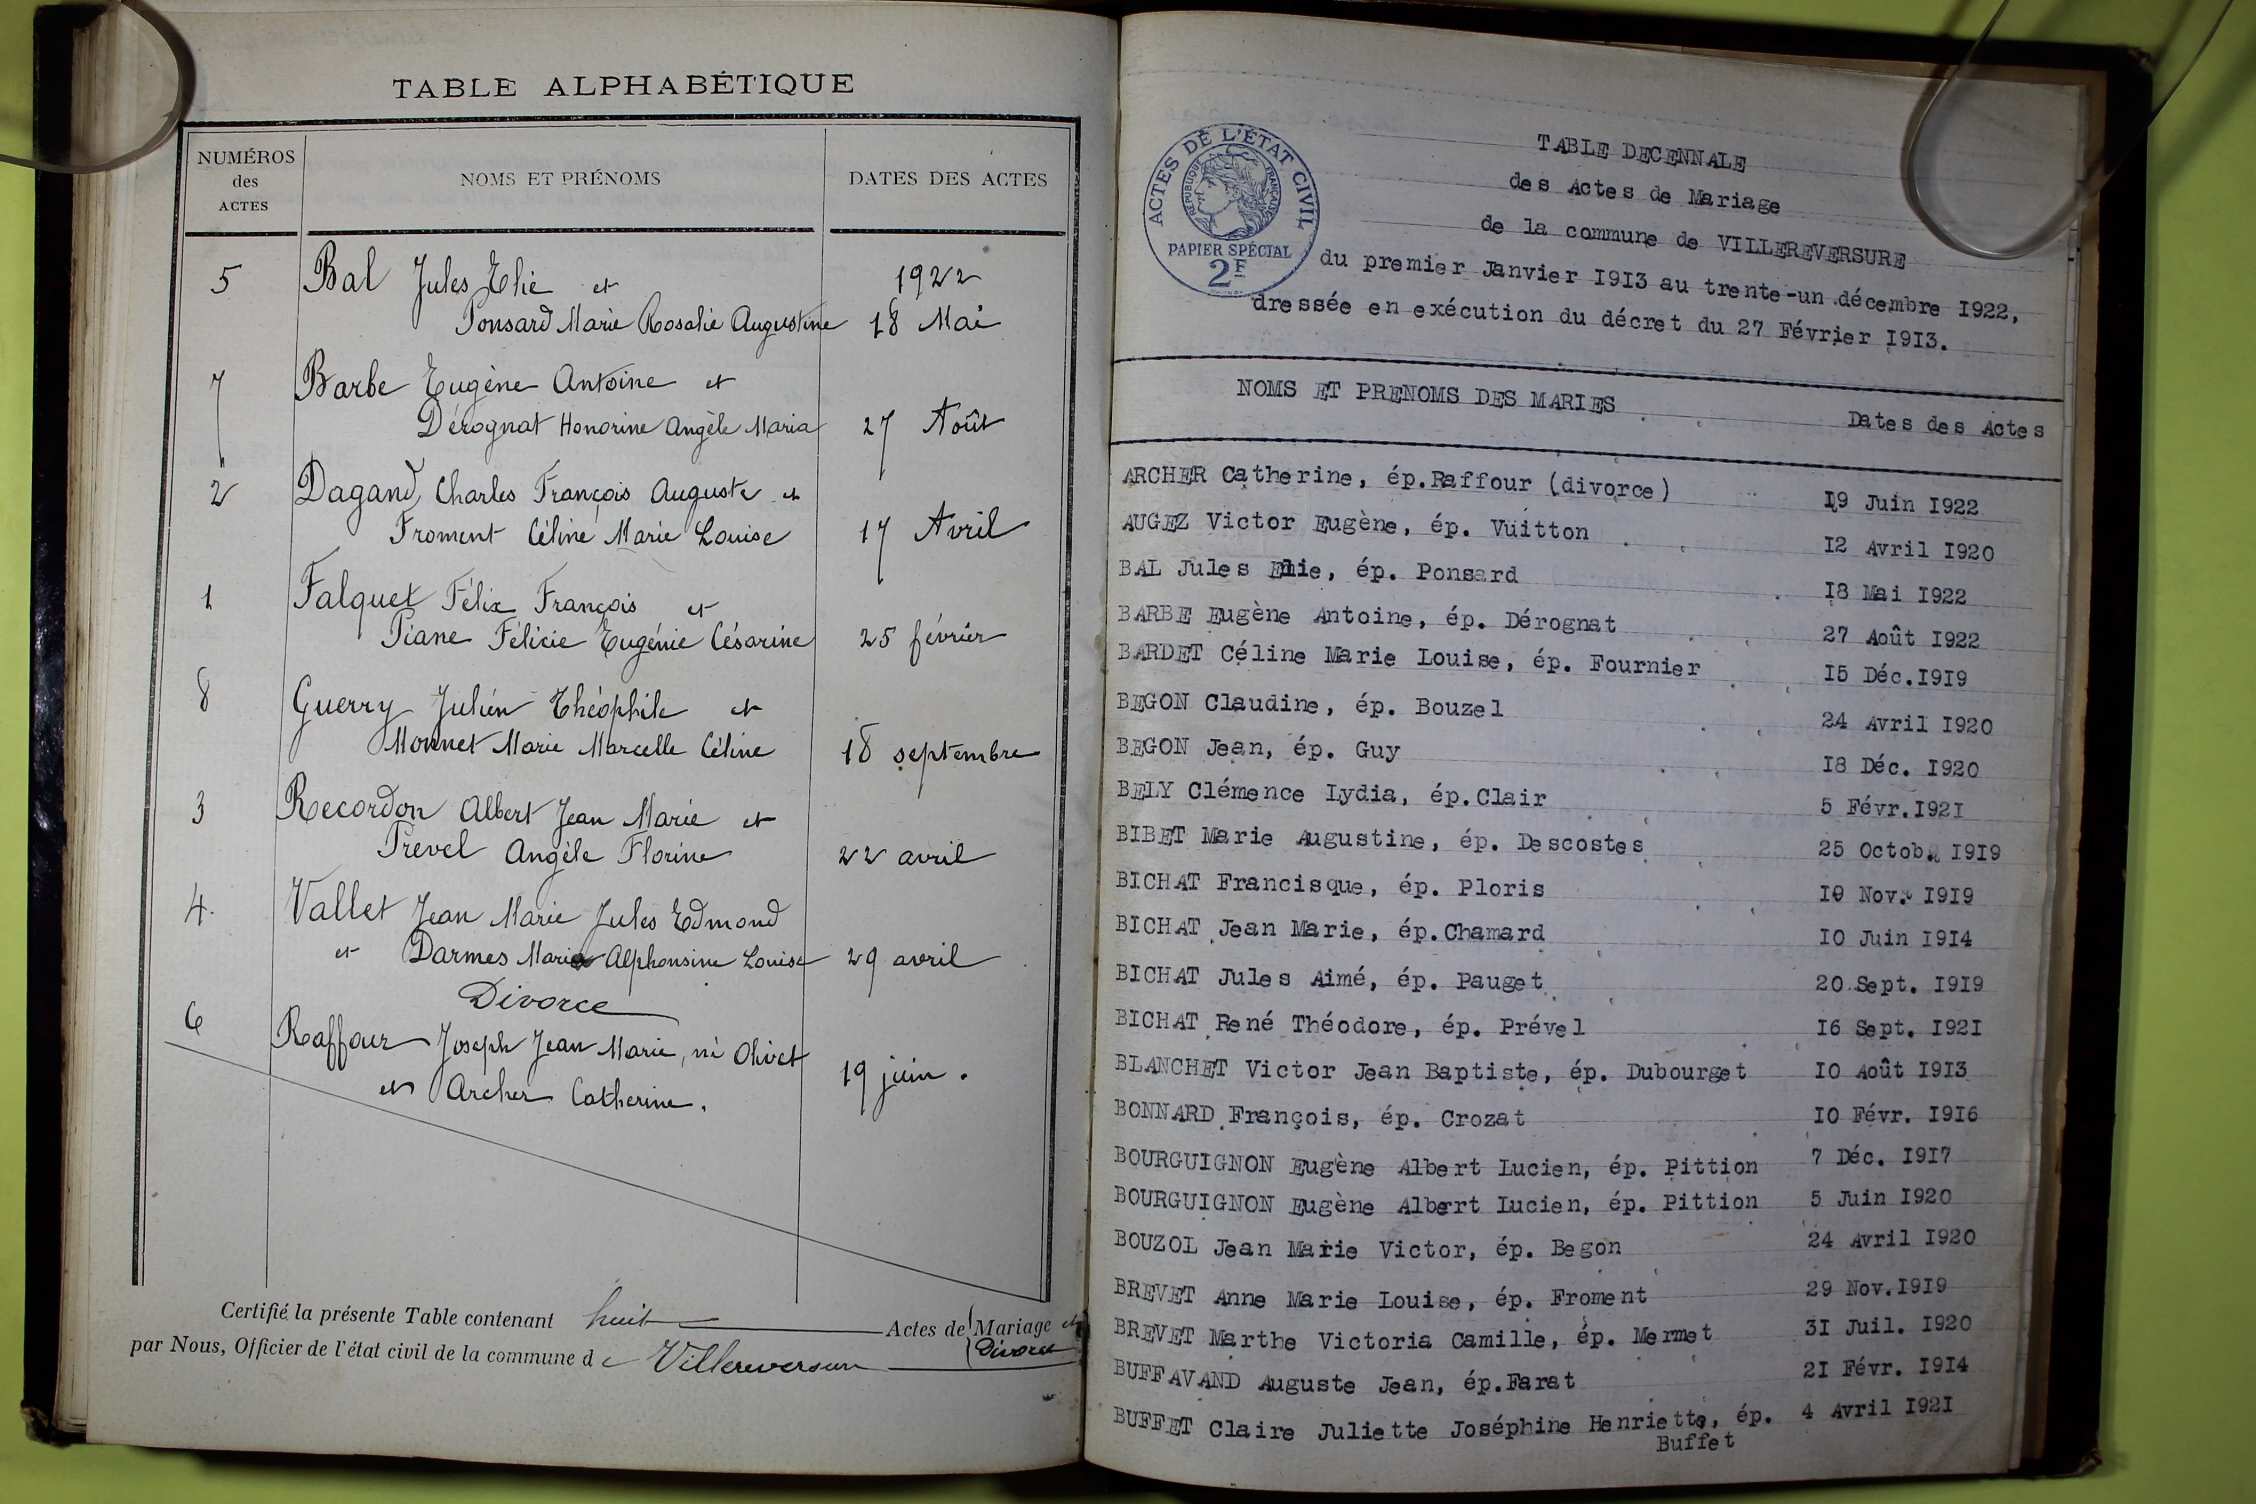 TABLE ALPHABÉTIQUE
NUMÉROS
des
ACTES
NOMS ET PRÉNOMS
DATES DES ACTES
5 Bal Jules Elie et 1922
Ponsard Marie Rosalie Augustine 18 Mai
7 Barbe Eugène Antoine et
Dérognat Honorine Angèle Maria 27 Août
2 Dagand Charles François Auguste et
Froment Céline Marie Louise 17 Avril
1 Falquet Félix François et
Piane Félicie Eugénie Césarine 25 février
8 Guerry Julien Théophile et
Monnet Marie Marcelle Céline 18 septembre
3 Recordon Albert Jean Marie et
Prevel Angèle Florine 22 avril
4. Vallet Jean Marie Jules Edmond
et Darmes Marie Alphonsine Louise 29 avril
Divorce
6 Raffour Joseph Jean Marie, né Olivet
et Archer Catherine. 19 juin.
Certifié la présente Table contenant huit Actes de Mariage et
Divorce
par Nous, Officier de l'état civil de la commune de Villereversure
ACTES DE L'ÉTAT CIVIL
REPUBLIQUE FRANÇAISE
PAPIER SPÉCIAL
2F
TABLE DECENNALE
des Actes de Mariage
de la commune de VILLEREVERSURE
du premier Janvier I9I3 au trente-un décembre I922,
dressée en exécution du décret du 27 Février I9I3.
NOMS ET PRENOMS DES MARIES Dates des Actes
ARCHER Catherine, ép.Raffour (divorce) I9 Juin I922
AUGEZ Victor Eugène, ép. Vuitton I2 Avril I920
BAL Jules Elie, ép. Ponsard I8 Mai I922
BARBE Eugène Antoine, ép. Dérognat 27 Août I922
BARDET Céline Marie Louise, ép. Fournier I5 Déc.I9I9
BEGON Claudine, ép. Bouzel 24 Avril I920
BEGON Jean, ép. Guy I8 Déc. I920
BELY Clémence Lydia, ép.Clair 5 Févr.I92I
BIBET Marie Augustine, ép. Descostes 25 Octob. I9I9
BICHAT Francisque, ép. Ploris I0 Nov. I9I9
BICHAT Jean Marie, ép.Chamard I0 Juin I9I4
BICHAT Jules Aimé, ép. Pauget 20 Sept. I9I9
BICHAT René Théodore, ép. Prével I6 Sept. I92I
BLANCHET Victor Jean Baptiste, ép. Dubourget I0 Août I9I3
BONNARD François, ép. Crozat I0 Févr. I9I6
BOURGUIGNON Eugène Albert Lucien, ép. Pittion 7 Déc. I9I7
BOURGUIGNON Eugène Albert Lucien, ép. Pittion 5 Juin I920
BOUZOL Jean Marie Victor, ép. Begon 24 Avril I920
BREVET Anne Marie Louise, ép. Froment 29 Nov.I9I9
BREVET Marthe Victoria Camille, ép. Mermet 3I Juil. I920
BUFFAVAND Auguste Jean, ép.Farat 2I Févr. I9I4
BUFFET Claire Juliette Joséphine Henriette, ép. 4 Avril I92I
Buffet